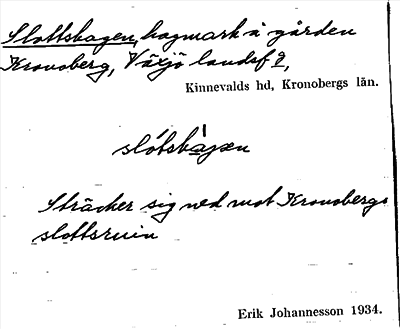 Slottshagen, hagmark å gården
Kronoberg, Växjö landsf ,
Kinnevalds hd, Kronobergs län.
slótsha̱gæn
Sträcker sig ned mot Kronobergs
slottsruin
Erik Johannesson 1934.